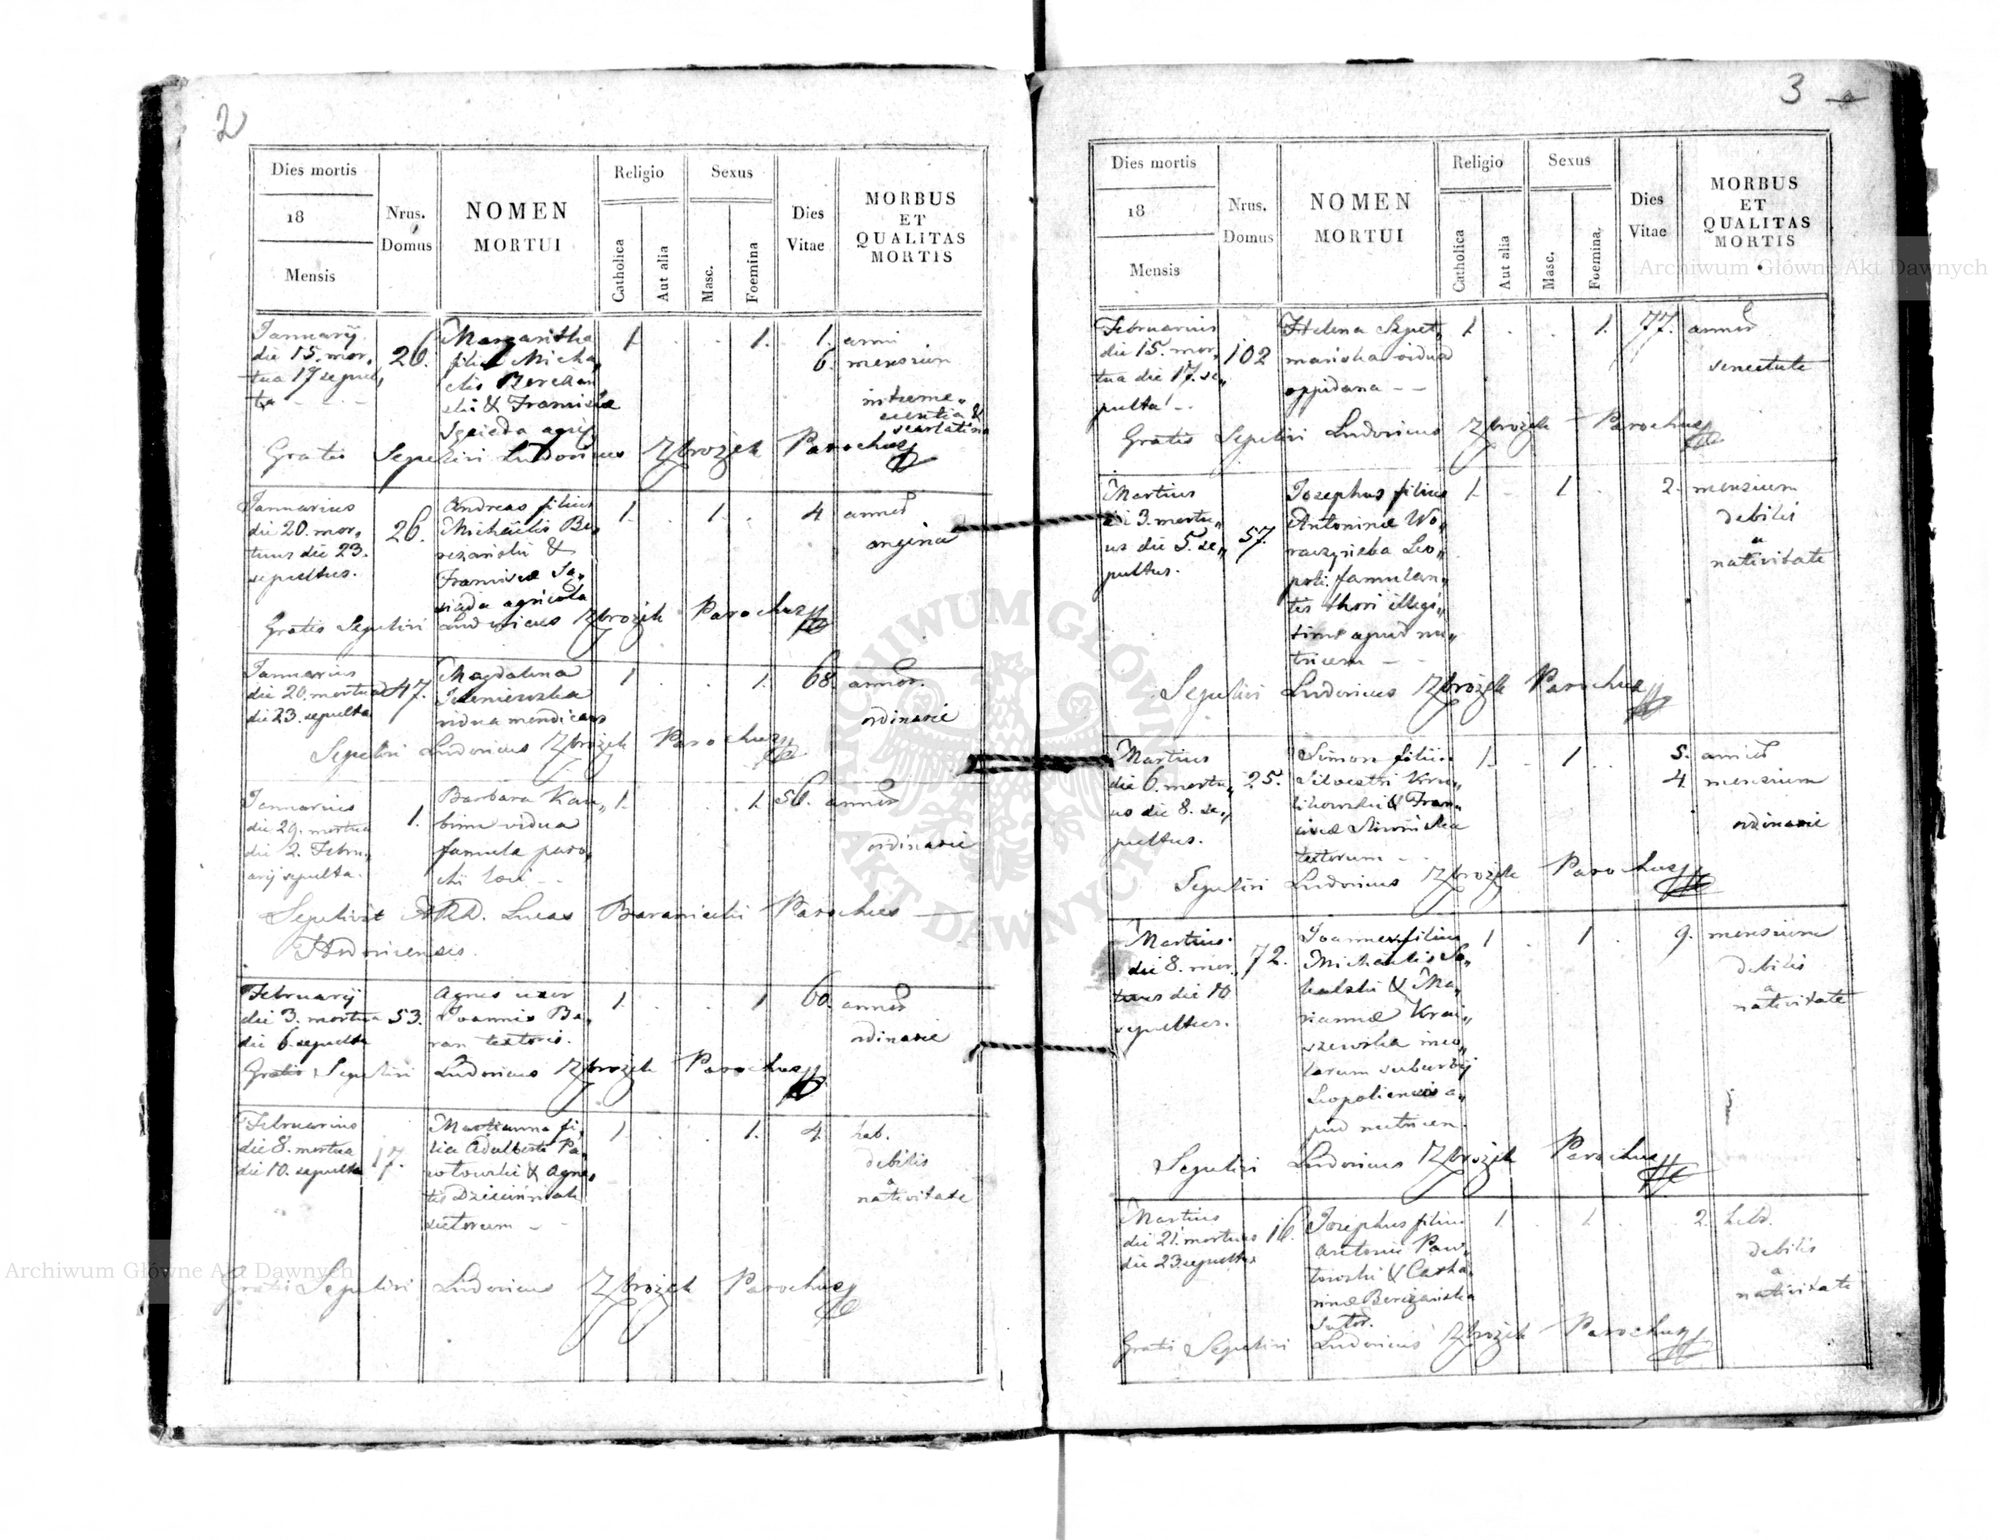 2
Dies mortis
18
Mensis
Nrus.
Domus
NOMEN
MORTUI
Religio
Catholica
Aut alia
Sexus
Masc.
Foemina
Dies
Vitae
MORBUS
ET
QUALITAS
MORTIS
Januarij
die 15. mor„
tua 17 sepul„
ta
26.
Margaritha
filia Micha„
elis
& Franciscae
1. . . 1.
1. anni
6. mensium
scarlatina
Gratis Sepelivi Ludovicus Zbrożek Parochus
Januarius
die 20. mor„
tuus die 23.
sepultus.
26.
Andreas filius
Michaelis Be„
reżański &
Franciscae Sa„
agricola
1. . 1. .
4. annor
angina
Gratis Sepelivi Ludovicus Zbrożek Parochus
Januarius
die 20. mortua
die 23. sepulta
47.
Magdalena
vidua mendicans
1. . . 1.
68. annor.
ordinarie
Sepelivi Ludovicus Zbrożek Parochus
Januarius
die 29. mortua
die 2. Febru„
arij sepulta.
1.
Barbara Kau„
bim vidua
famula paro„
chi loci
1. . . 1.
56. annor
ordinarie
Sepelivit ARD. Lucas Baraniecki Parochus
Hodovicensis.
Februarij
die 3. mortua
die 6. sepulta
53.
Agnes uxor
Joannis Ba„
ran textoris.
1. . . 1
60. annor
ordinarie
Gratis Sepelivi Ludovicus Zbrożek Parochus
Februarius
die 8. mortua
die 10. sepulta
17.
Marianna fi„
lia Adalberti Pa„
wlowski & Agne„
tis
sutorum
1. . . 1.
4. heb.
debilis
a
nativitate
Gratis Sepelivi Ludovicus Zbrożek Parochus
3
Dies mortis
18
Mensis
Nrus.
Domus
NOMEN
MORTUI
Religio
Catholica
Aut alia
Sexus
Masc.
Foemina.
Dies
Vitae
MORBUS
ET
QUALITAS
MORTIS
Februarius
die 15. mor„
tua die 17. se„
pulta
102
Helena Szpet„
mańska vidua
oppidana
1. . . 1.
77. annor
senectute
Gratis Sepelivi Ludovicus Zbrożek Parochus
Martius
die 3. mortu„
us die 5. se„
pultus.
57.
Josephus filius
Antoninae Wo„
raczyńska Leo„
poli famulan„
tis thori illegi„
timi apud nu„
tricem
1. . 1 .
2. mensium
debilis
a
nativitate
Sepelivi Ludovicus Zbrożek Parochus
Martius
die 6. mortu„
us die 8. se„
pultus.
25.
Simon filius
Silvestri Kru„
likowski & Fran„
ciscae
textorum
1. . 1 .
5. annor
4. mensium
ordinarie
Sepelivi Ludovicus Zbrożek Parochus
Martius
die 8. mor„
tuus die 10
sepultus.
72.
Joannes filius
Michaelis Sa„
& Ma„
riannae Krai„
szewska inco„
larum suburbij
Leopoliensis a„
pud nutricem.
1 . 1 .
9. mensium
debilis
a
nativitate
Sepelivi Ludovicus Zbrożek Parochus
Martius
die 21. mortuus
die 23. sepultus
16.
Josephus filius
Antonii Paw„
lowski & Catha„
rinae Bereżańska
sutor.
1. . 1. .
2. hebd.
debilis
a
nativitate
Gratis Sepelivi Ludovicus Zbrożek Parochus
ARCHIWUM GŁÓWNE AKT DAWNYCH
Archiwum Główne Akt Dawnych
Archiwum Główne Akt Dawnych